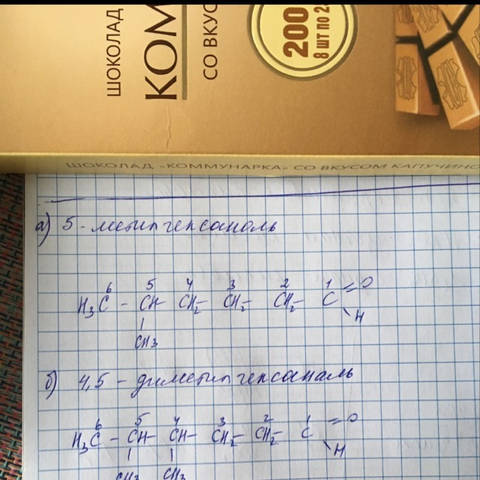 ШОКОЛАД
КОМ
СО ВКУС
200
8 шт по 2
ШОКОЛАД «КОММУНАРКА» СО ВКУСОМ КАПУЧИНО
а) 5 - метилгексаналь
6 5 4 3 2 1
H₃C - CH CH₂ - CH₂ CH₂ C =O
H
CH₃
б) 4,5 - диметилгексаналь
6 5 4 3 2 1
H₃C - CH - CH - CH₂ CH₂ C =O
H
CH₃ CH₃